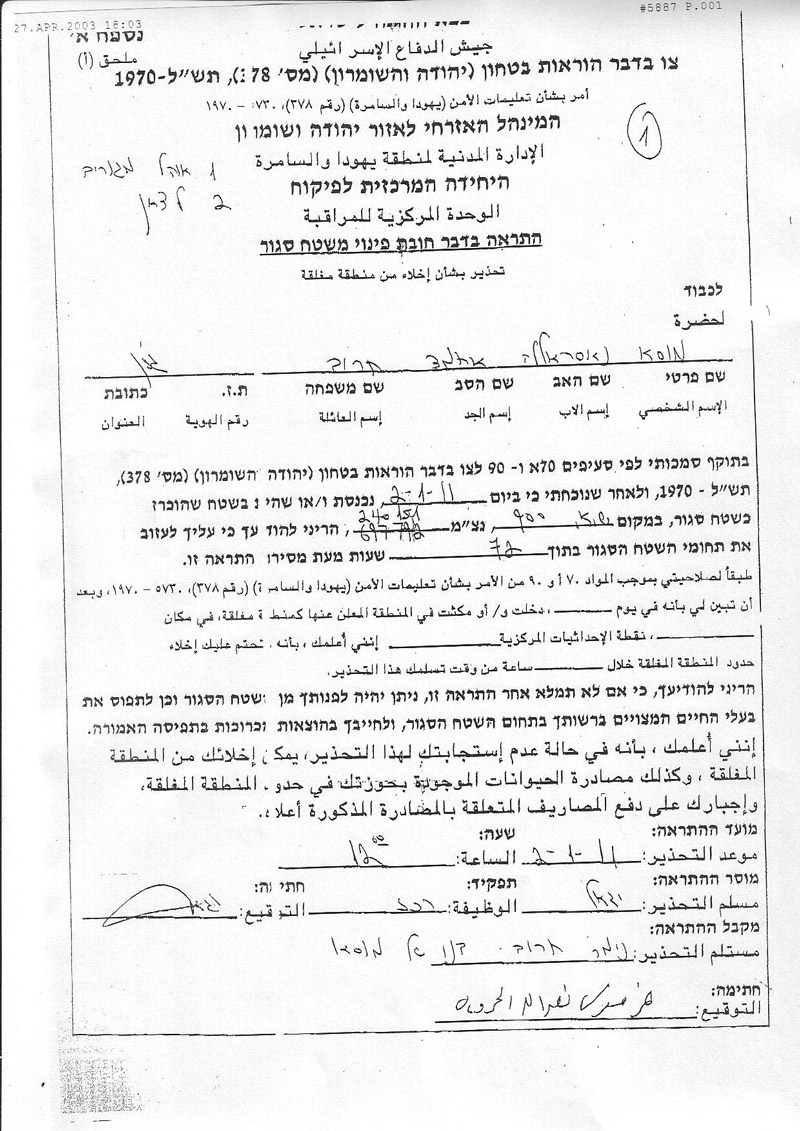 27.APR.2003 18:03
#5887 P.001
נספח א'
ملحق (أ)
جيش الدفاع الإسرائيلي
צו בדבר הוראות בטחון (יהודה והשומרון) (מס' 378), תש"ל-1970
أمر بشأن تعليمات الأمن (يهودا والسامرة) (رقم ٣٧٨)، ٥٧٣٠ - ١٩٧٠
המינהל האזרחי לאזור יהודה ושומרון
1
الإدارة المدنية لمنطقة يهودا والسامرة
1 אוהל מגורים
היחידה המרכזית לפיקוח
2
الوحدة المركزية للمراقبة
התראה בדבר חובת פינוי משטח סגור
تحذير بشأن إخلاء من منطقة مغلقة
לכבוד
لحضرة
מוסא נאסראללה אחמד חרוב
שם פרטי שם האב שם הסב שם משפחה ת.ז. כתובת
الإسم الشخصي إسم الاب إسم الجد إسم العائلة رقم الهوية العنوان
בתוקף סמכותי לפי סעיפים 70א ו- 90 לצו בדבר הוראות בטחון (יהודה והשומרון) (מס' 378),
תש"ל - 1970, ולאחר שנוכחתי כי ביום 2-1-11, נכנסת ו/או שהית בשטח שהוכרז
כשטח סגור, במקום 900, נצ"מ, הריני להודיעך כי עליך לעזוב
את תחומי השטח הסגור בתוך 72 שעות מעת מסירת התראה זו.
طبقاً لصلاحيتي بموجب المواد ٧٠أ و ٩٠ من الأمر بشأن تعليمات الأمن (يهودا والسامرة) (رقم ٣٧٨)، ٥٧٣٠ - ١٩٧٠، وبعد
أن تبين لي بأنه في يوم، دخلت و/ أو مكثت في المنطقة المعلن عنها كمنطقة مغلقة، في مكان
، نقطة الإحداثيات المركزية إنني أعلمك، بأنه يتحتم عليك إخلاء
حدود المنطقة المغلقة خلال ساعة من وقت تسلمك هذا التحذير.
הריני להודיעך, כי אם לא תמלא אחר התראה זו, ניתן יהיה לפנותך מן השטח הסגור וכן לתפוס את
בעלי החיים המצויים ברשותך בתחום השטח הסגור, ולחייבך בהוצאות הכרוכות בתפיסה האמורה.
إنني أعلمك، بأنه في حالة عدم إستجابتك لهذا التحذير، يمكن إخلائك من المنطقة
المغلقة، وكذلك مصادرة الحيوانات الموجودة بحوزتك في حدود المنطقة المغلقة،
وإجبارك على دفع المصاريف المتعلقة بالمصادرة المذكورة أعلاه.
מועד ההתראה: שעה:
موعد التحذير: 2-1-11 الساعة: 12 00
מוסר ההתראה: תפקיד: חתימה:
مسلم التحذير: יגאל الوظيفة: רכז التوقيع: יגאל
מקבל ההתראה:
مستلم التحذير: חרוב של מוסא
חתימה:
التوقيع: